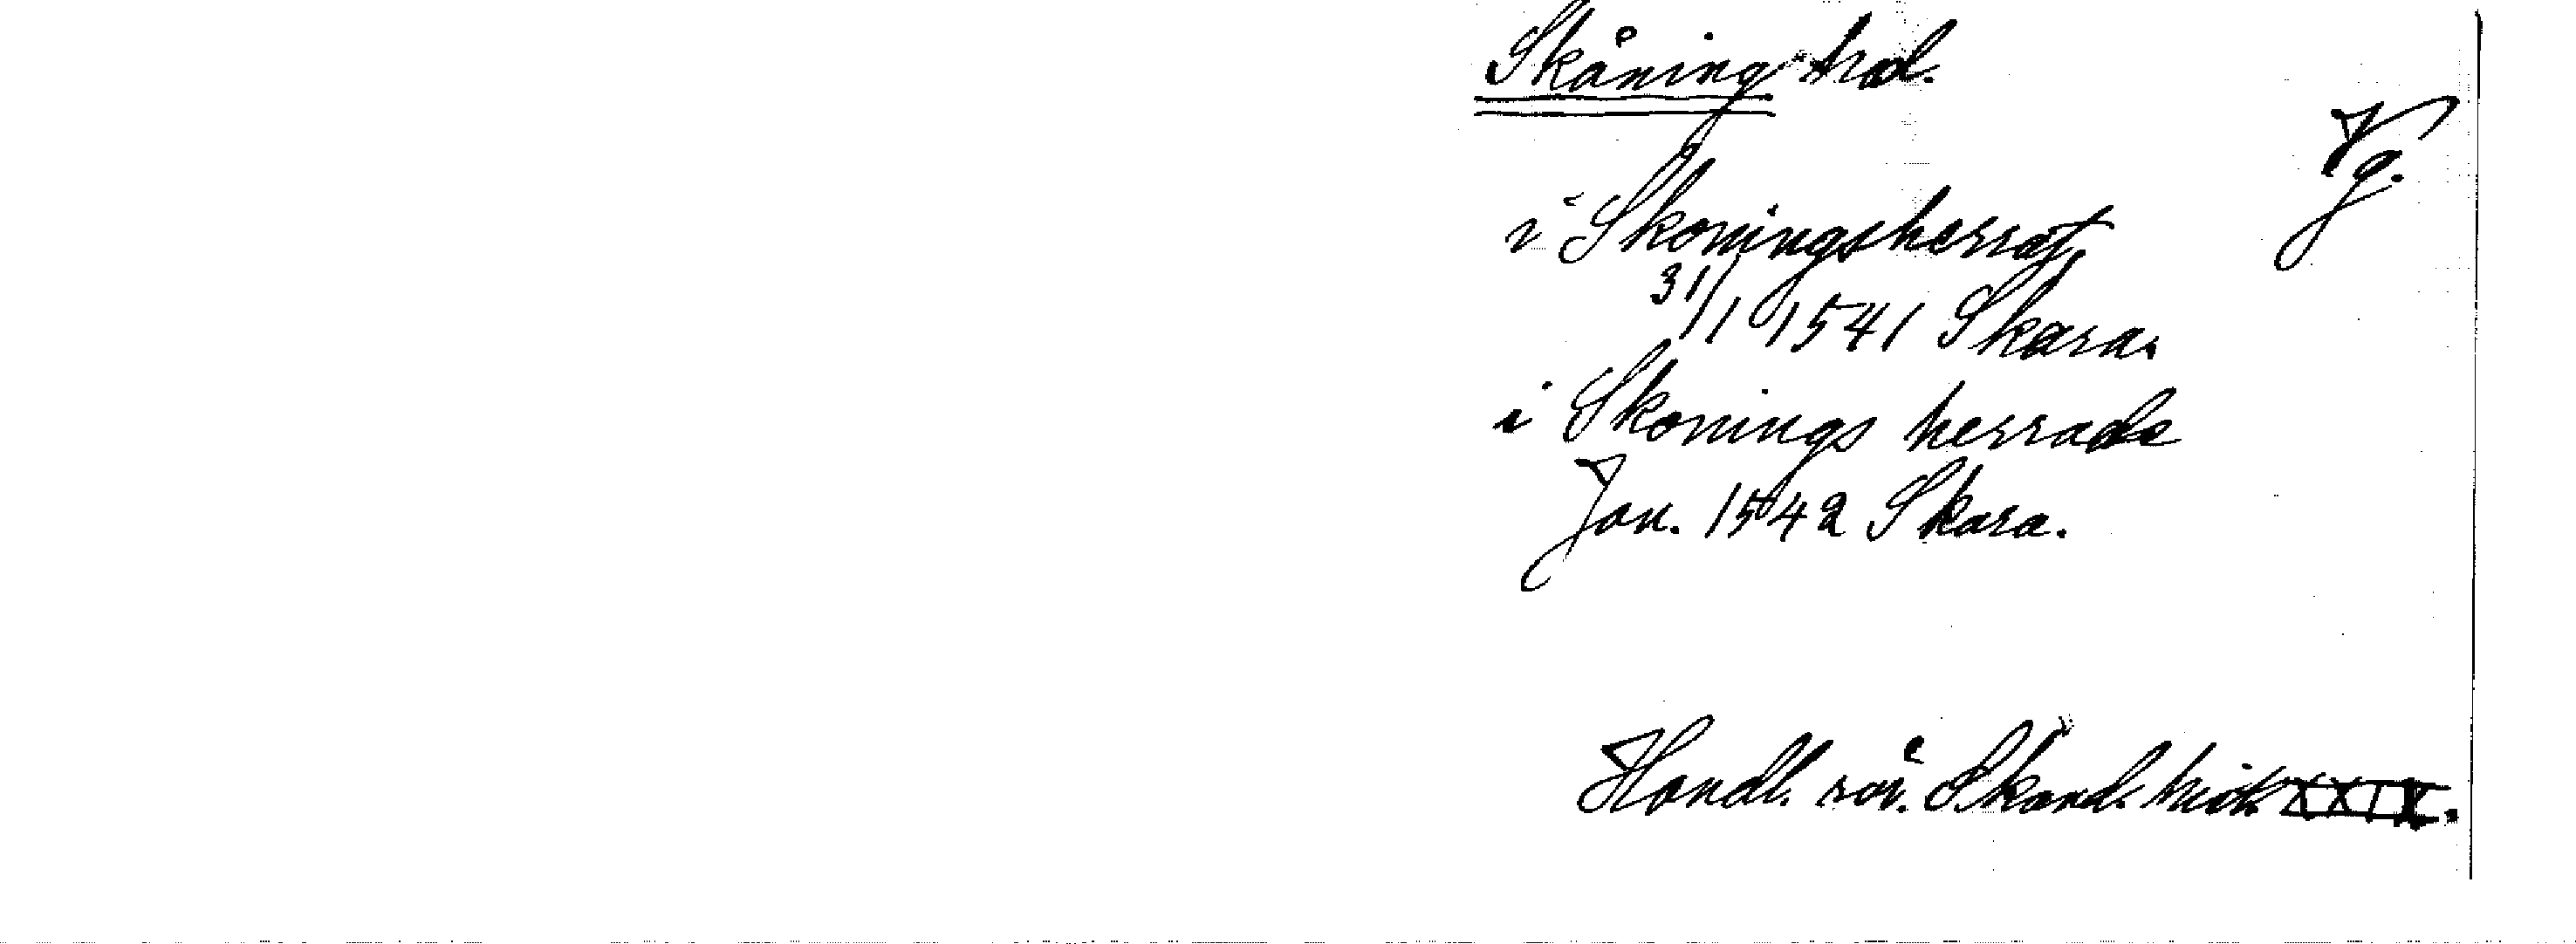 Skånings hrd.
Vg.
i Skoningsherrat,
31/1 1541 Skara.
i Skonings herrade
Jan. 1542 Skara.
Handl. rör. Skand. hist. XXIX.